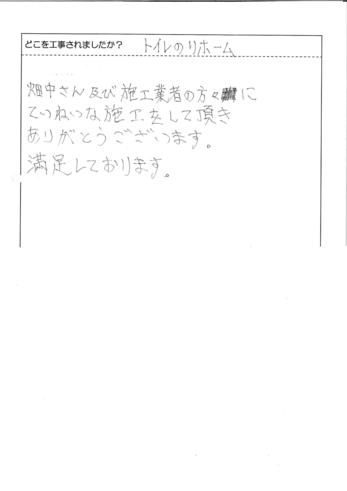 どこを工事されましたか？ トイレのリホーム
畑中さん及び施工業者の方々に
ていねいな施工をして頂き
ありがとうございます。
満足しております。